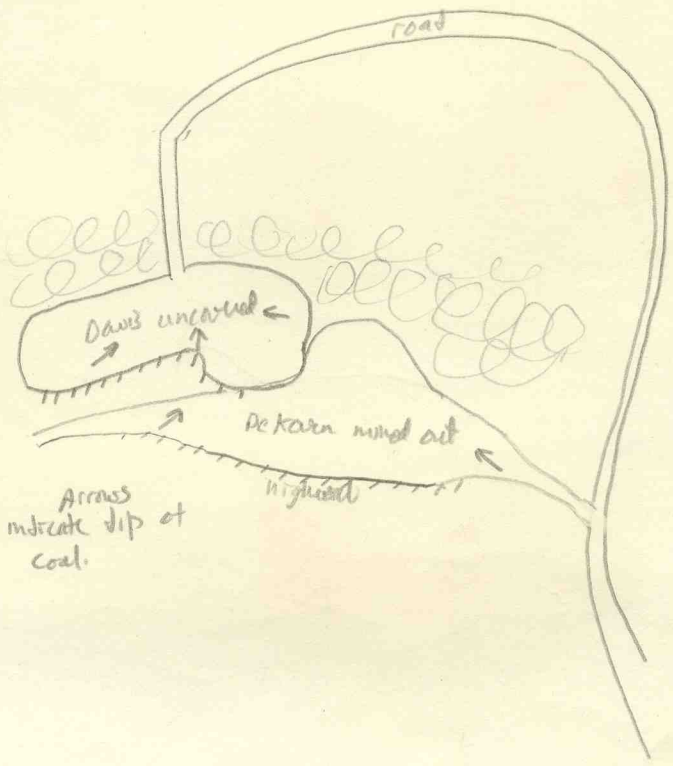 road
Davis uncovered
DeKoven mined out
highwall
Arrows
indicate dip of
coal.